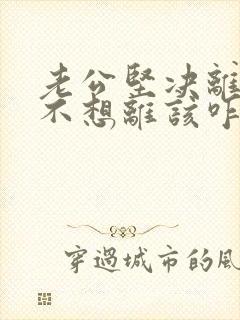 老公堅決離
不想離該咋
穿過城市的風